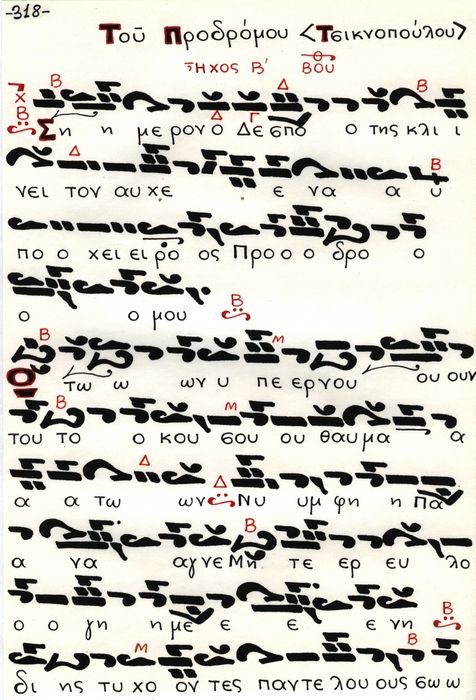 -318-
Τοῦ Προδρόμου <Τσικνοπούλου>
Ἦχος Β' Βου
Β Δ Β
χ Β Δ Γ
Ση η μερον ο Δε σπο ο της κλι ι
Δ Β
νει τον αυ χε ε να α υ
πο ο χει ει ρο ος Προ ο ο δρο ο
ο ο μου Β
Β Μ
Ιο τω ω ων υ πε εργου ου ουν
Β Μ
του το ο κου σου ου θαυ μα α α
Δ Δ
α α τω ων Νυ υμ φη η Πα
Β
α να αγνε Μη τε ερ ευ λο
ο ο γη η με ε ε ε νη Β
Μ Β
δι ης τυ χο ον τες παντε λου ους σω ω